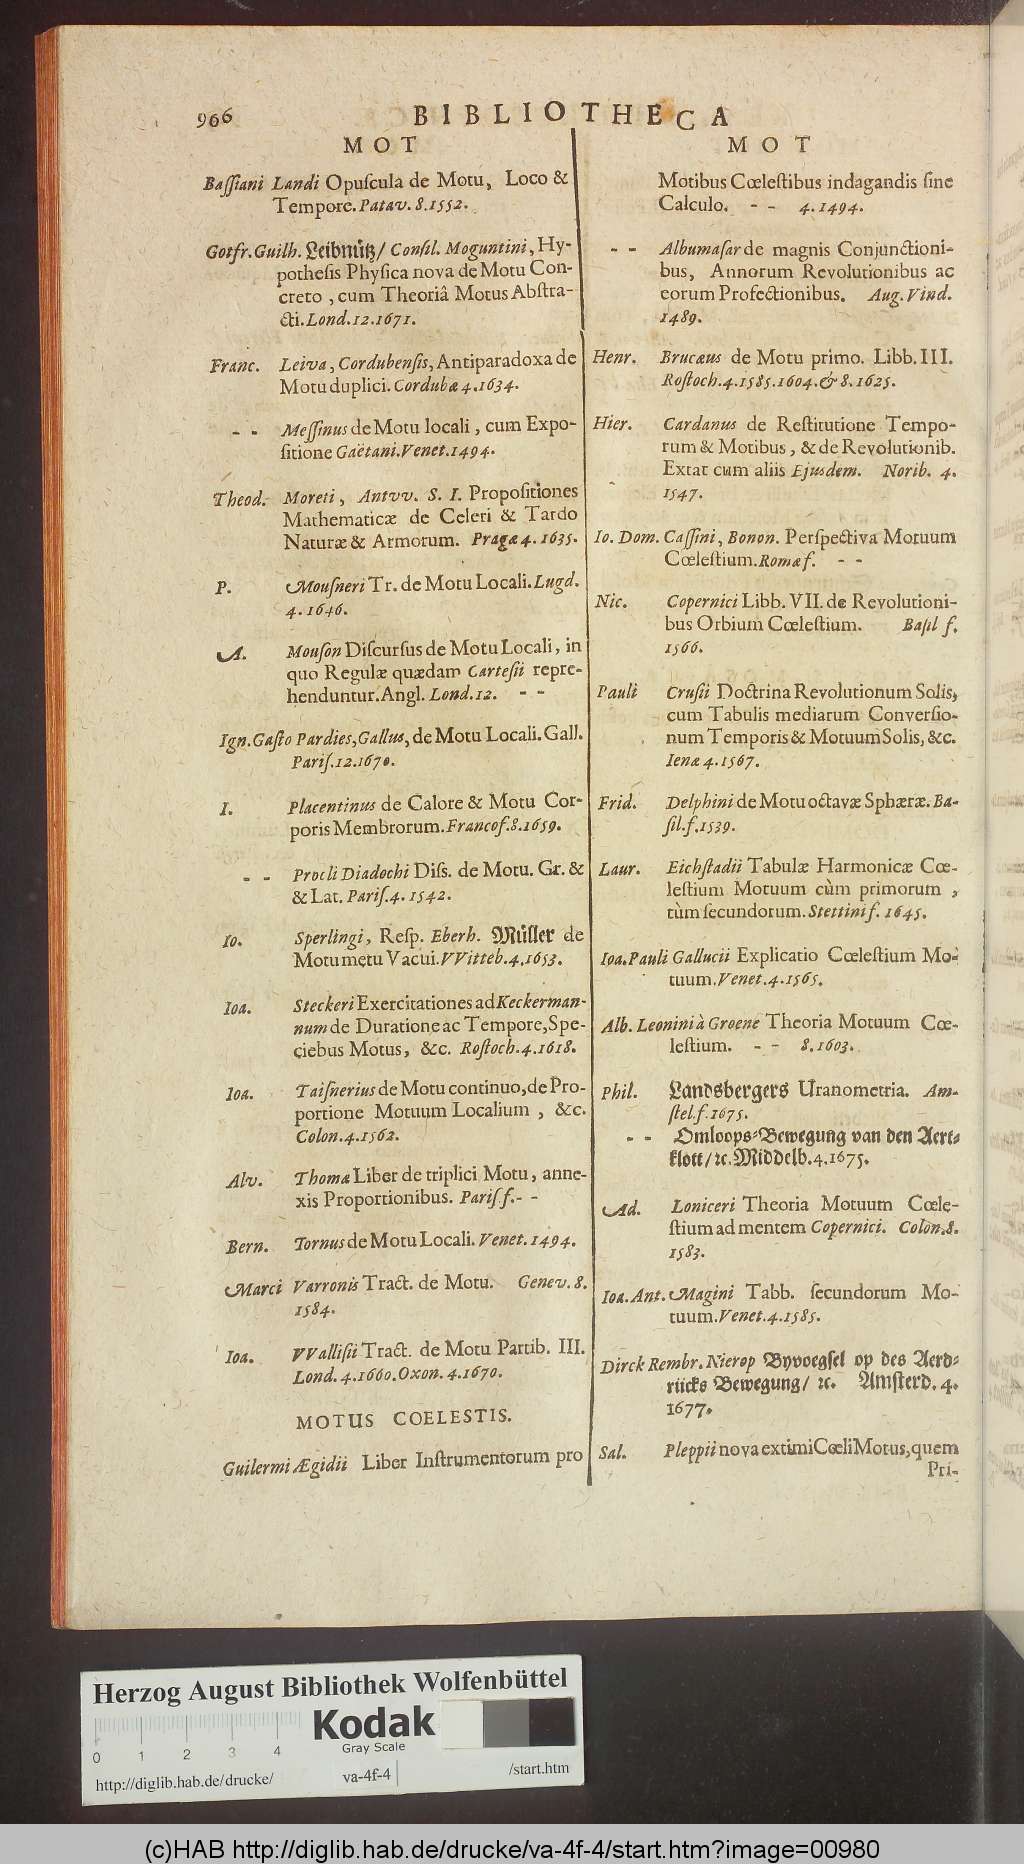 966
BIBLIOTHECA
MOT
Baſſiani Landi Opuſcula de Motu, Loco &
Tempore. Patav. 8. 1552.
Gotfr. Guilh. Leibnütz/ Conſil. Moguntini, Hy-
potheſis Phyſica nova de Motu Con-
creto, cum Theoriâ Motus Abſtra-
cti. Lond. 12. 1671.
Franc. Leiva, Cordubenſis, Antiparadoxa de
Motu duplici. Cordubæ 4. 1634.
- - Meſſinus de Motu locali, cum Expo-
ſitione Gaëtani. Venet. 1494.
Theod. Moreti, Antvv. S. I. Propoſitiones
Mathematicæ de Celeri & Tardo
Naturæ & Armorum. Pragæ 4. 1635.
P. Mouſneri Tr. de Motu Locali. Lugd.
4. 1646.
A. Mouſon Diſcurſus de Motu Locali, in
quo Regulæ quædam Carteſii repre-
henduntur. Angl. Lond. 12. - -
Ign. Gaſto Pardies, Gallus, de Motu Locali. Gall.
Pariſ. 12. 1670.
I. Placentinus de Calore & Motu Cor-
poris Membrorum. Francof. 8. 1659.
- - Procli Diadochi Diſs. de Motu. Gr. &
& Lat. Pariſ. 4. 1542.
Io. Sperlingi, Reſp. Eberh. Müller de
Motu metu Vacui. VVitteb. 4. 1653.
Ioa. Steckeri Exercitationes ad Keckerman-
num de Duratione ac Tempore, Spe-
ciebus Motus, &c. Roſtoch. 4. 1618.
Ioa. Taiſnerius de Motu continuo, de Pro-
portione Motuum Localium, &c.
Colon. 4. 1562.
Alv. Thomæ Liber de triplici Motu, anne-
xis Proportionibus. Pariſ f. - -
Bern. Tornus de Motu Locali. Venet. 1494.
Marci Varronis Tract. de Motu. Genev. 8.
1584.
Ioa. VValliſii Tract. de Motu Partib. III.
Lond. 4. 1660. Oxon. 4. 1670.
MOTUS COELESTIS.
Guilermi Ægidii Liber Inſtrumentorum pro
MOT
Motibus Cœleſtibus indagandis ſine
Calculo. - - 4. 1494.
- - Albumaſar de magnis Conjunctioni-
bus, Annorum Revolutionibus ac
eorum Profectionibus. Aug. Vind.
1489.
Henr. Brucæus de Motu primo. Libb. III.
Roſtoch. 4. 1585. 1604. & 8. 1625.
Hier. Cardanus de Reſtitutione Tempo-
rum & Motibus, & de Revolutionib.
Extat cum aliis Ejusdem. Norib. 4.
1547.
Io. Dom. Caſſini, Bonon. Perſpectiva Motuum
Cœleſtium. Romæ f. - -
Nic. Copernici Libb. VII. de Revolutioni-
bus Orbium Cœleſtium. Baſil f.
1566.
Pauli Cruſii Doctrina Revolutionum Solis,
cum Tabulis mediarum Converſio-
num Temporis & Motuum Solis, &c.
Ienæ 4. 1567.
Frid. Delphini de Motu octavæ Sphæræ. Ba-
ſil. f. 1539.
Laur. Eichſtadii Tabulæ Harmonicæ Cœ-
leſtium Motuum cùm primorum,
tùm ſecundorum. Stettini f. 1645.
Ioa. Pauli Gallucii Explicatio Cœleſtium Mo-
tuum. Venet. 4. 1565.
Alb. Leonini à Groene Theoria Motuum Cœ-
leſtium. - - 8. 1603.
Phil. Landsbergers Uranometria. Am-
ſtel. f. 1675.
- - Omloops-Bewegung van den Aert-
klott/ ꝛc. Middelb. 4. 1675.
Ad. Loniceri Theoria Motuum Cœle-
ſtium ad mentem Copernici. Colon. 8.
1583.
Ioa. Ant. Magini Tabb. ſecundorum Mo-
tuum. Venet. 4. 1585.
Dirck Rembr. Nierop Byvoegſel op des Aerd-
riicks Bewegung/ ꝛc. Amſterd. 4.
1677.
Sal. Pleppii nova extimi Cœli Motus, quem
Pri-
Herzog August Bibliothek Wolfenbüttel
Kodak
Gray Scale
0 1 2 3 4
http://diglib.hab.de/drucke/ va-4f-4 /start.htm
(c)HAB http://diglib.hab.de/drucke/va-4f-4/start.htm?image=00980